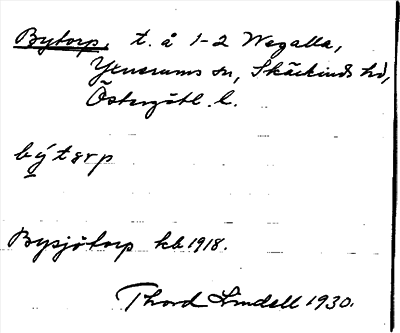 Bytorp, t. å 1-2 Wegalla,
Yxnerums sn, Skärkinds hd,
Östergötl. l.
býtorp
Bysjötorp kb 1918.
Thord Lindell 1930.